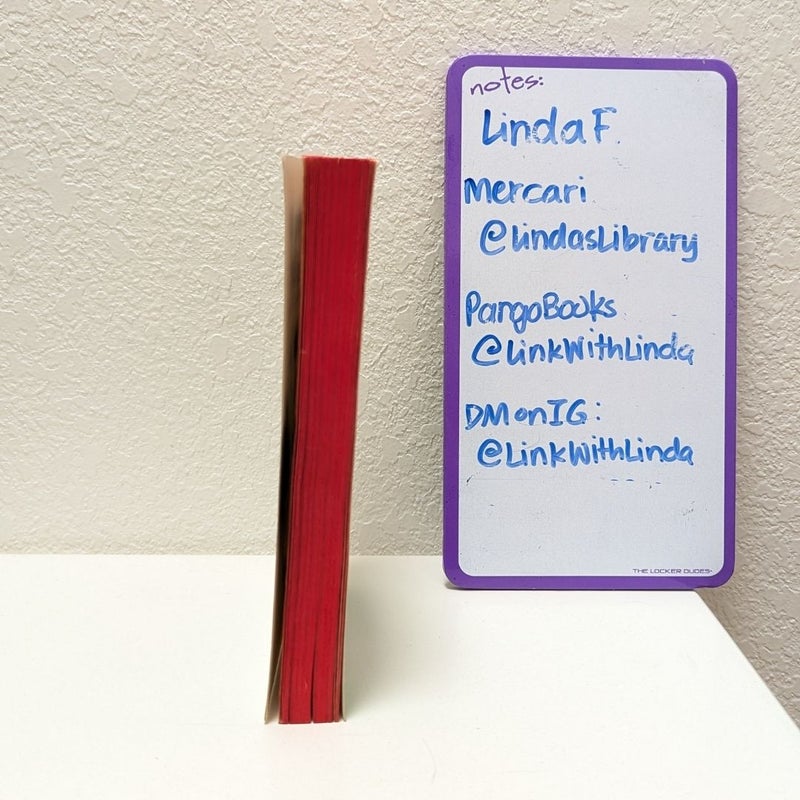 notes:
Linda F.
Mercari
@lindasLibrary
PangoBooks
@LinkWithLinda
DM on IG:
@LinkWithLinda
THE LOCKER DUDES